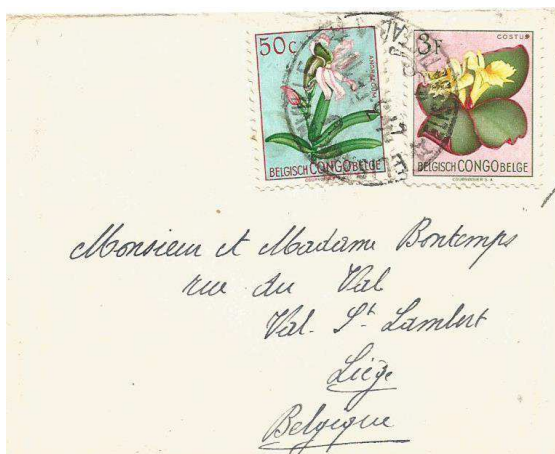 50c
ANGRAECUM
BELGISCH CONGO BELGE
3F
COSTUS
BELGISCH CONGO BELGE
COURVOISIER S.A.
Monsieur et Madame Bontemps
rue du Val
Val. St. Lambert
Liège
Belgique